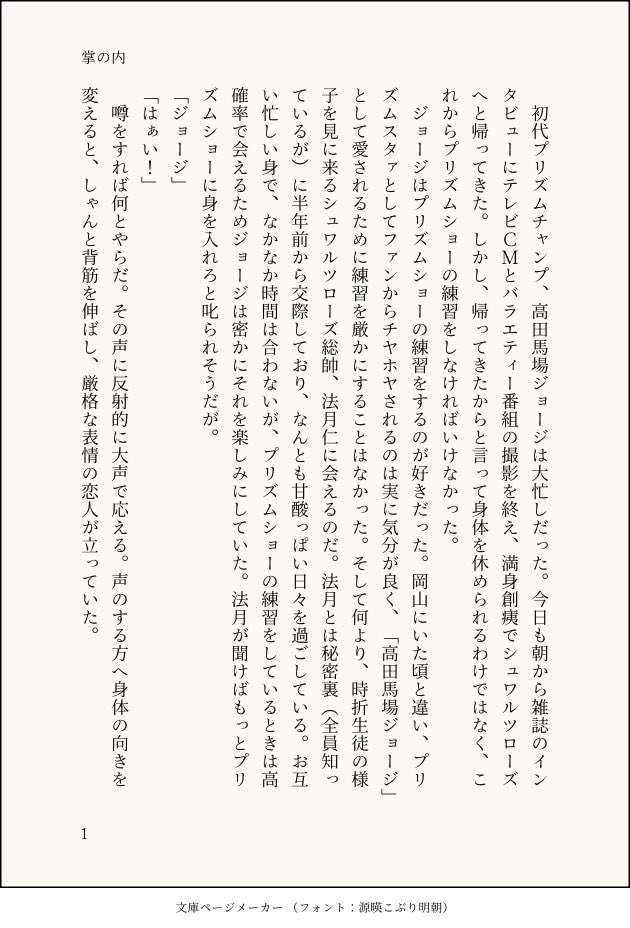 掌の内
　初代プリズムチャンプ、高田馬場ジョージは大忙しだった。今日も朝から雑誌のイン
タビューにテレビＣＭとバラエティー番組の撮影を終え、満身創痍でシュワルツローズ
へと帰ってきた。しかし、帰ってきたからと言って身体を休められるわけではなく、こ
れからプリズムショーの練習をしなければいけなかった。
　ジョージはプリズムショーの練習をするのが好きだった。岡山にいた頃と違い、プリ
ズムスタァとしてファンからチヤホヤされるのは実に気分が良く、「高田馬場ジョージ」
として愛されるために練習を厳かにすることはなかった。そして何より、時折生徒の様
子を見に来るシュワルツローズ総帥、法月仁に会えるのだ。法月とは秘密裏（全員知っ
ているが）に半年前から交際しており、なんとも甘酸っぱい日々を過ごしている。お互
い忙しい身で、なかなか時間は合わないが、プリズムショーの練習をしているときは高
確率で会えるためジョージは密かにそれを楽しみにしていた。法月が聞けばもっとプリ
ズムショーに身を入れろと叱られそうだが。
「ジョージ」
「はぁい！」
　噂をすれば何とやらだ。その声に反射的に大声で応える。声のする方へ身体の向きを
変えると、しゃんと背筋を伸ばし、厳格な表情の恋人が立っていた。
1
文庫ページメーカー （フォント：源暎こぶり明朝）